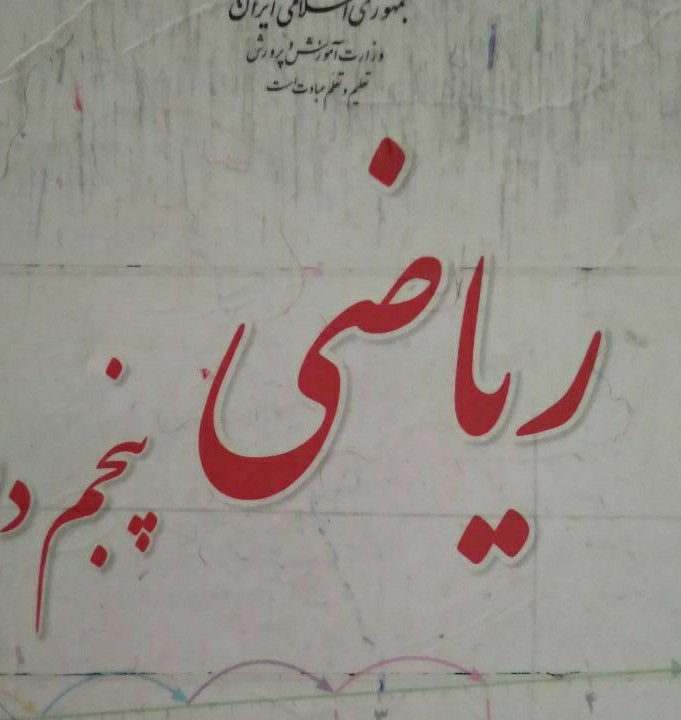 جمهوری اسلامی ایران
وزارت آموزش و پرورش
تعلیم و تعلم عبادت است
ریاضی
پنجم
۳ ۴